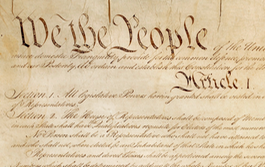 We the People of the Unite
insure domestic Tranquility, provide for the common defence, promot
and our Posterity, do ordain and establish this Constitution for the
Article. I
Section. 1. All legislative Powers herein granted shall be vested in
of Representatives.
Section. 2. The House of Representatives shall be composed of Members
in each State shall have Qualifications requisite for Electors of the most numer
No Person shall be a Representative who shall not have attained
and who shall not, when elected, be an Inhabitant of that State in which he shall
Representatives and direct Taxes shall be apportioned among the several